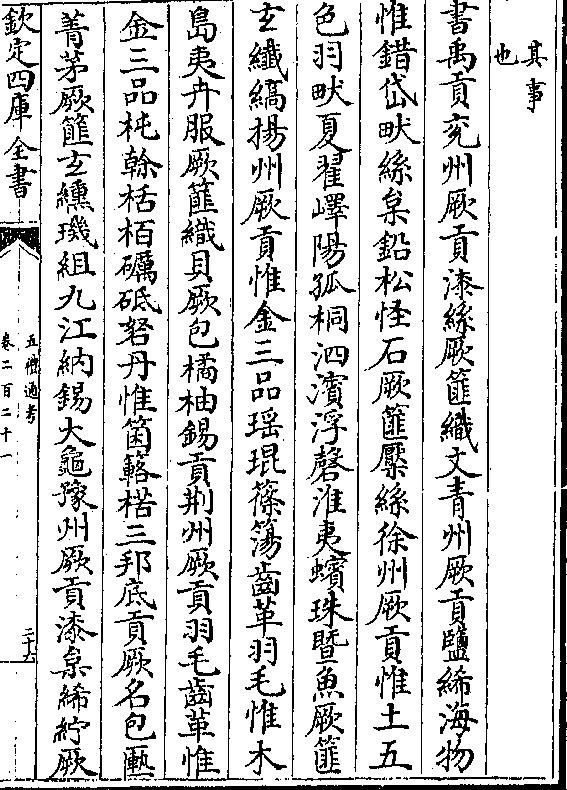 其事
也
書禹貢兖州厥貢漆絲厥篚織文青州厥貢鹽絺海物
惟錯岱畎絲枲鉛松怪石厥篚檿絲徐州厥貢惟土五
色羽畎夏翟嶧陽孤桐泗濱浮磬淮夷蠙珠曁魚厥篚
玄纖縞揚州厥貢惟金三品瑶琨篠簜齒革羽毛惟木
島夷卉服厥篚織貝厥包橘柚錫貢荆州厥貢羽毛齒革惟
金三品杶榦栝栢礪砥砮丹惟箘簵楛三邦底貢厥名包匭
菁茅厥篚玄纁璣組九江納錫大龜豫州厥貢漆枲絺紵厥
欽定四庫全書
五禮通考
卷二百二十一
二十六